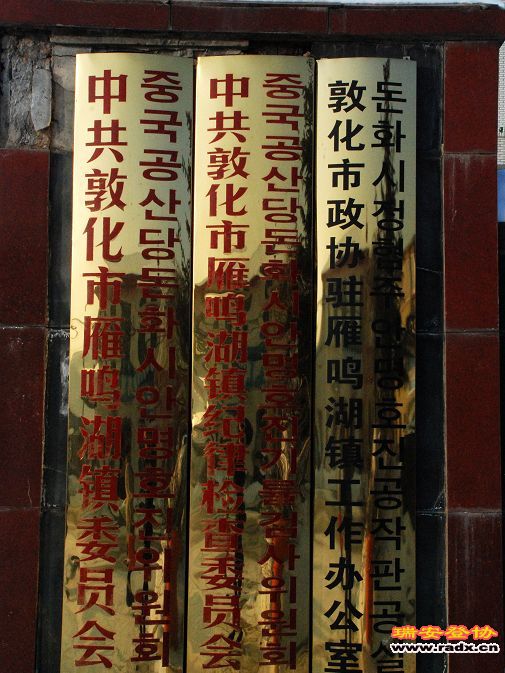 中共敦化市雁鸣湖镇委员会
중국공산당돈화시안명호진위원회
中共敦化市雁鸣湖镇纪律检查委员会
중국공산당돈화시안명호진기률검사위원회
敦化市政协驻雁鸣湖镇工作办公室
돈화시정협주안명호진공작판공실
瑞安登协
www.radx.cn